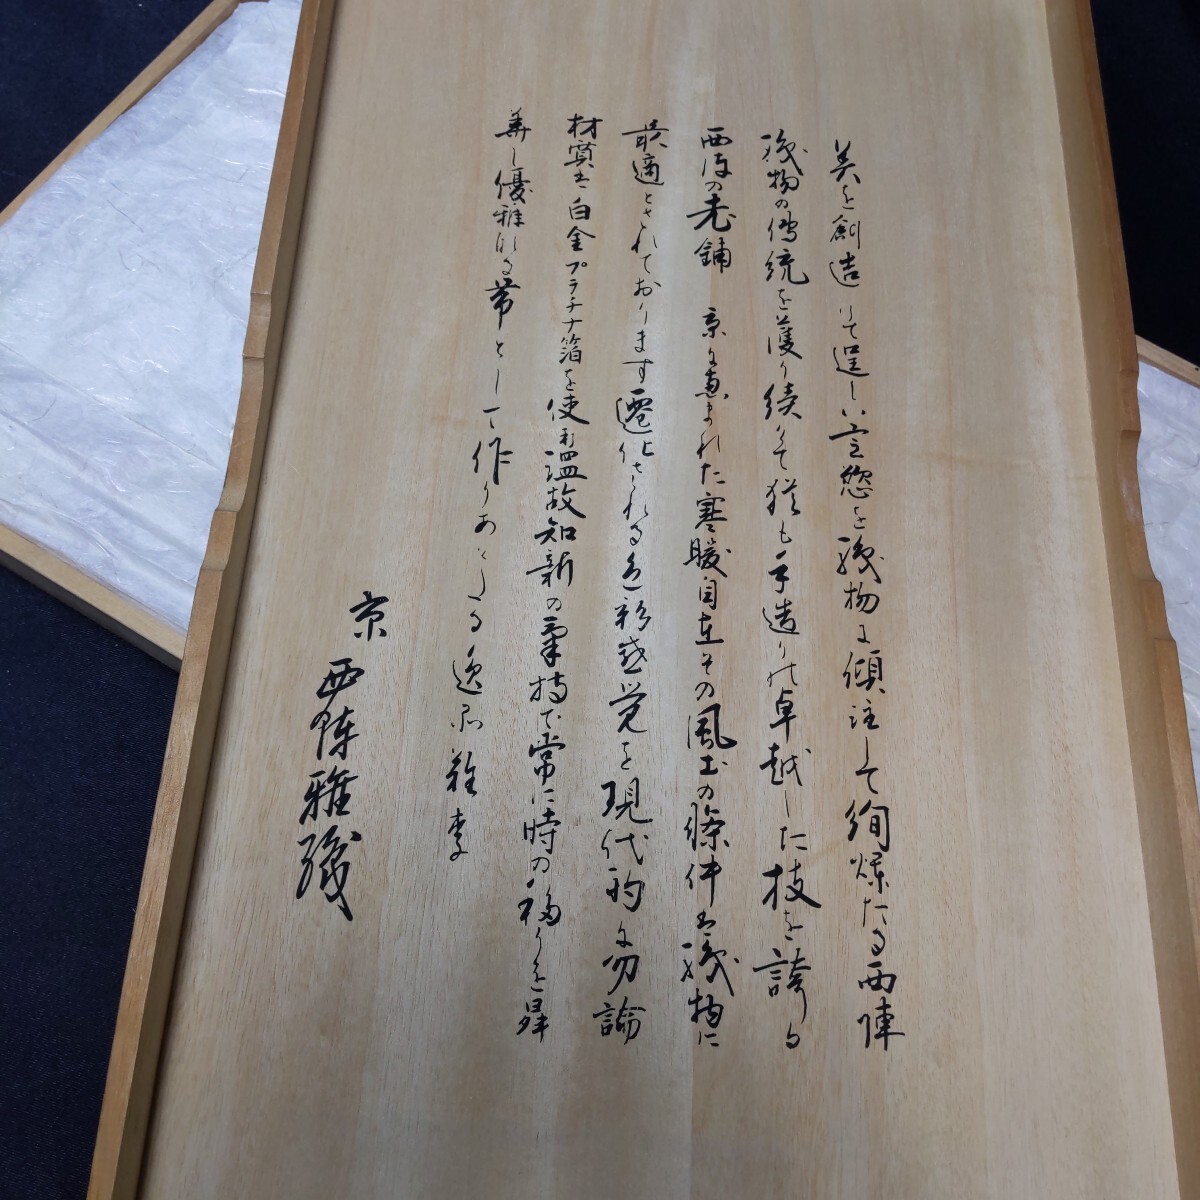 美を創造して逞しい意慾を織物に傾注して絢爛たる西陣
織物の傳統を護り続けて猶も手造りの卓越した技を誇る
西陣の老舗 京に恵まれた寒暖自在その風土の條件は織物に
最適とされております 遷化される色彩感覚を現代的に勿論
材質は白金プラチナ箔を使用温故知新の氣持で常に時の移りを昇
華し優雅なる帯として作りあげたる逸品
京 西陣雅織